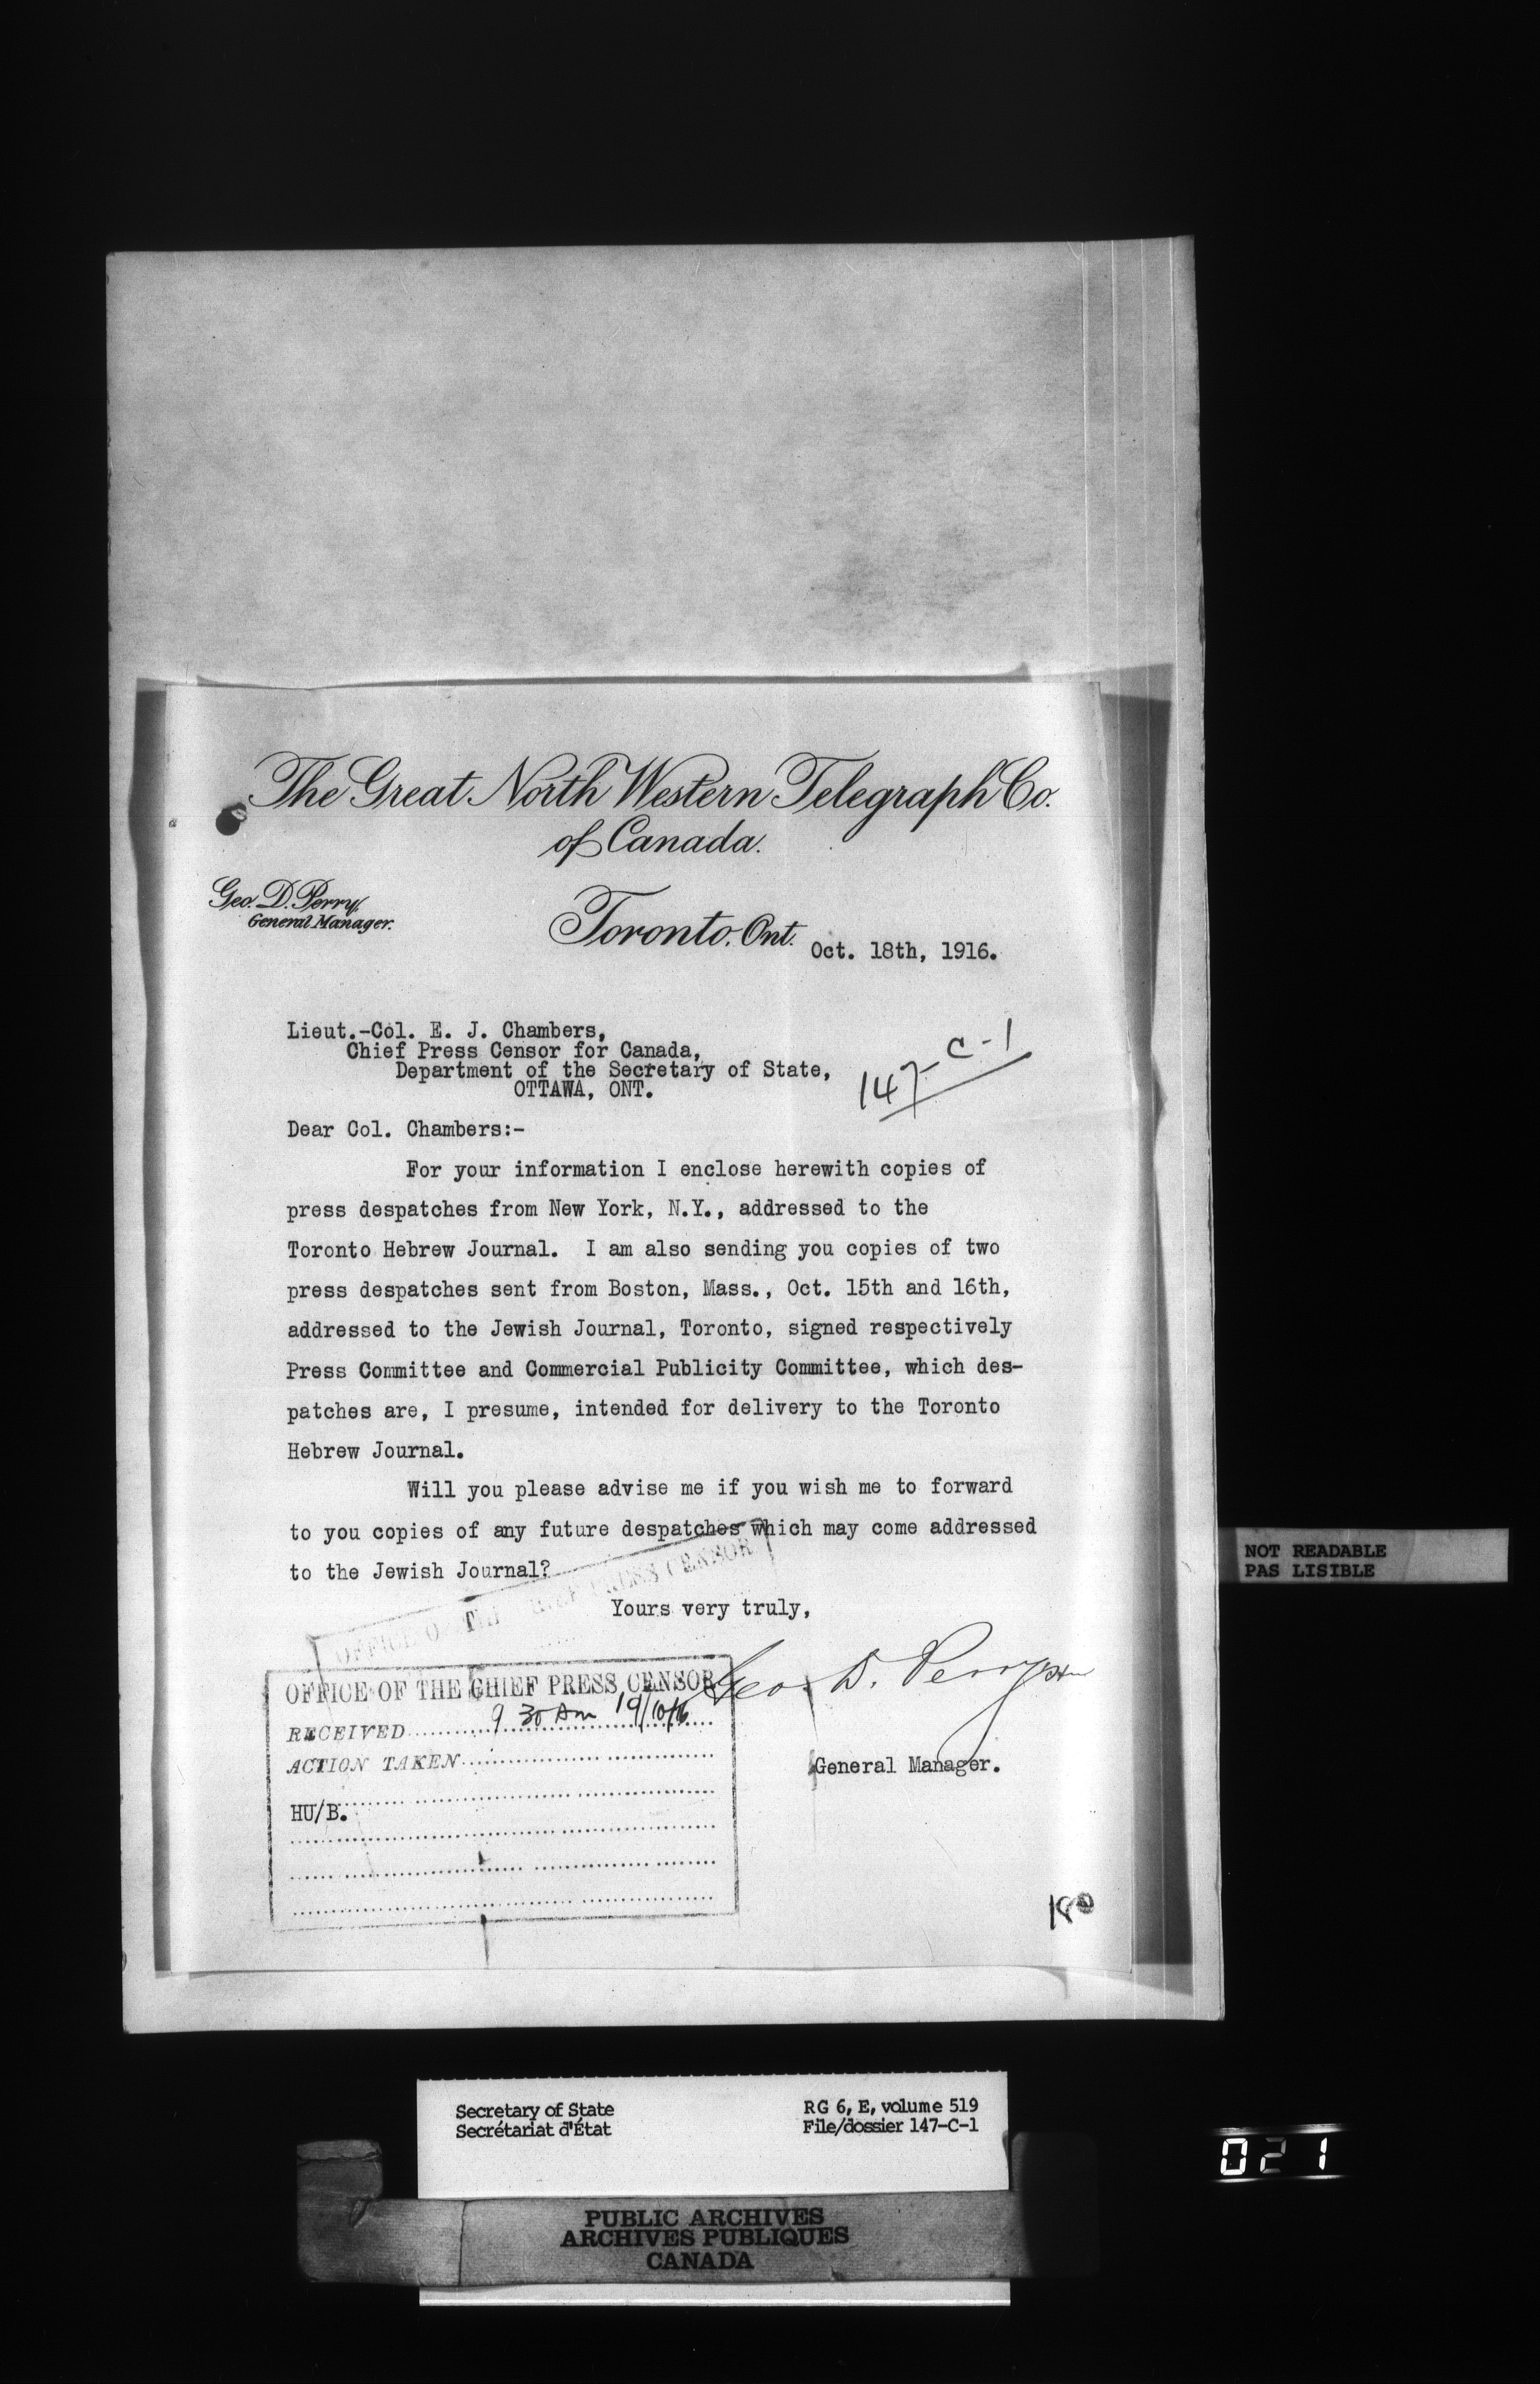 The Great North Western Telegraph Co.
of Canada.
Geo. D. Perry,
General Manager.
Toronto, Ont. Oct. 18th, 1916.
Lieut.-Col. E. J. Chambers,
Chief Press Censor for Canada,
Department of the Secretary of State,
OTTAWA, ONT.
147-C-1
Dear Col. Chambers:-
For your information I enclose herewith copies of
press despatches from New York, N.Y., addressed to the
Toronto Hebrew Journal. I am also sending you copies of two
press despatches sent from Boston, Mass., Oct. 15th and 16th,
addressed to the Jewish Journal, Toronto, signed respectively
Press Committee and Commercial Publicity Committee, which des-
patches are, I presume, intended for delivery to the Toronto
Hebrew Journal.
Will you please advise me if you wish me to forward
to you copies of any future despatches which may come addressed
to the Jewish Journal?
Yours very truly,
OFFICE OF THE CHIEF PRESS CENSOR
Geo. D. Perry
OFFICE OF THE CHIEF PRESS CENSOR
RECEIVED 9 30 am 19/10/16
ACTION TAKEN
General Manager.
HU/B.
NOT READABLE
PAS LISIBLE
Secretary of State
Secrétariat d'État
RG 6, E, volume 519
File/dossier 147-C-1
021
PUBLIC ARCHIVES
ARCHIVES PUBLIQUES
CANADA